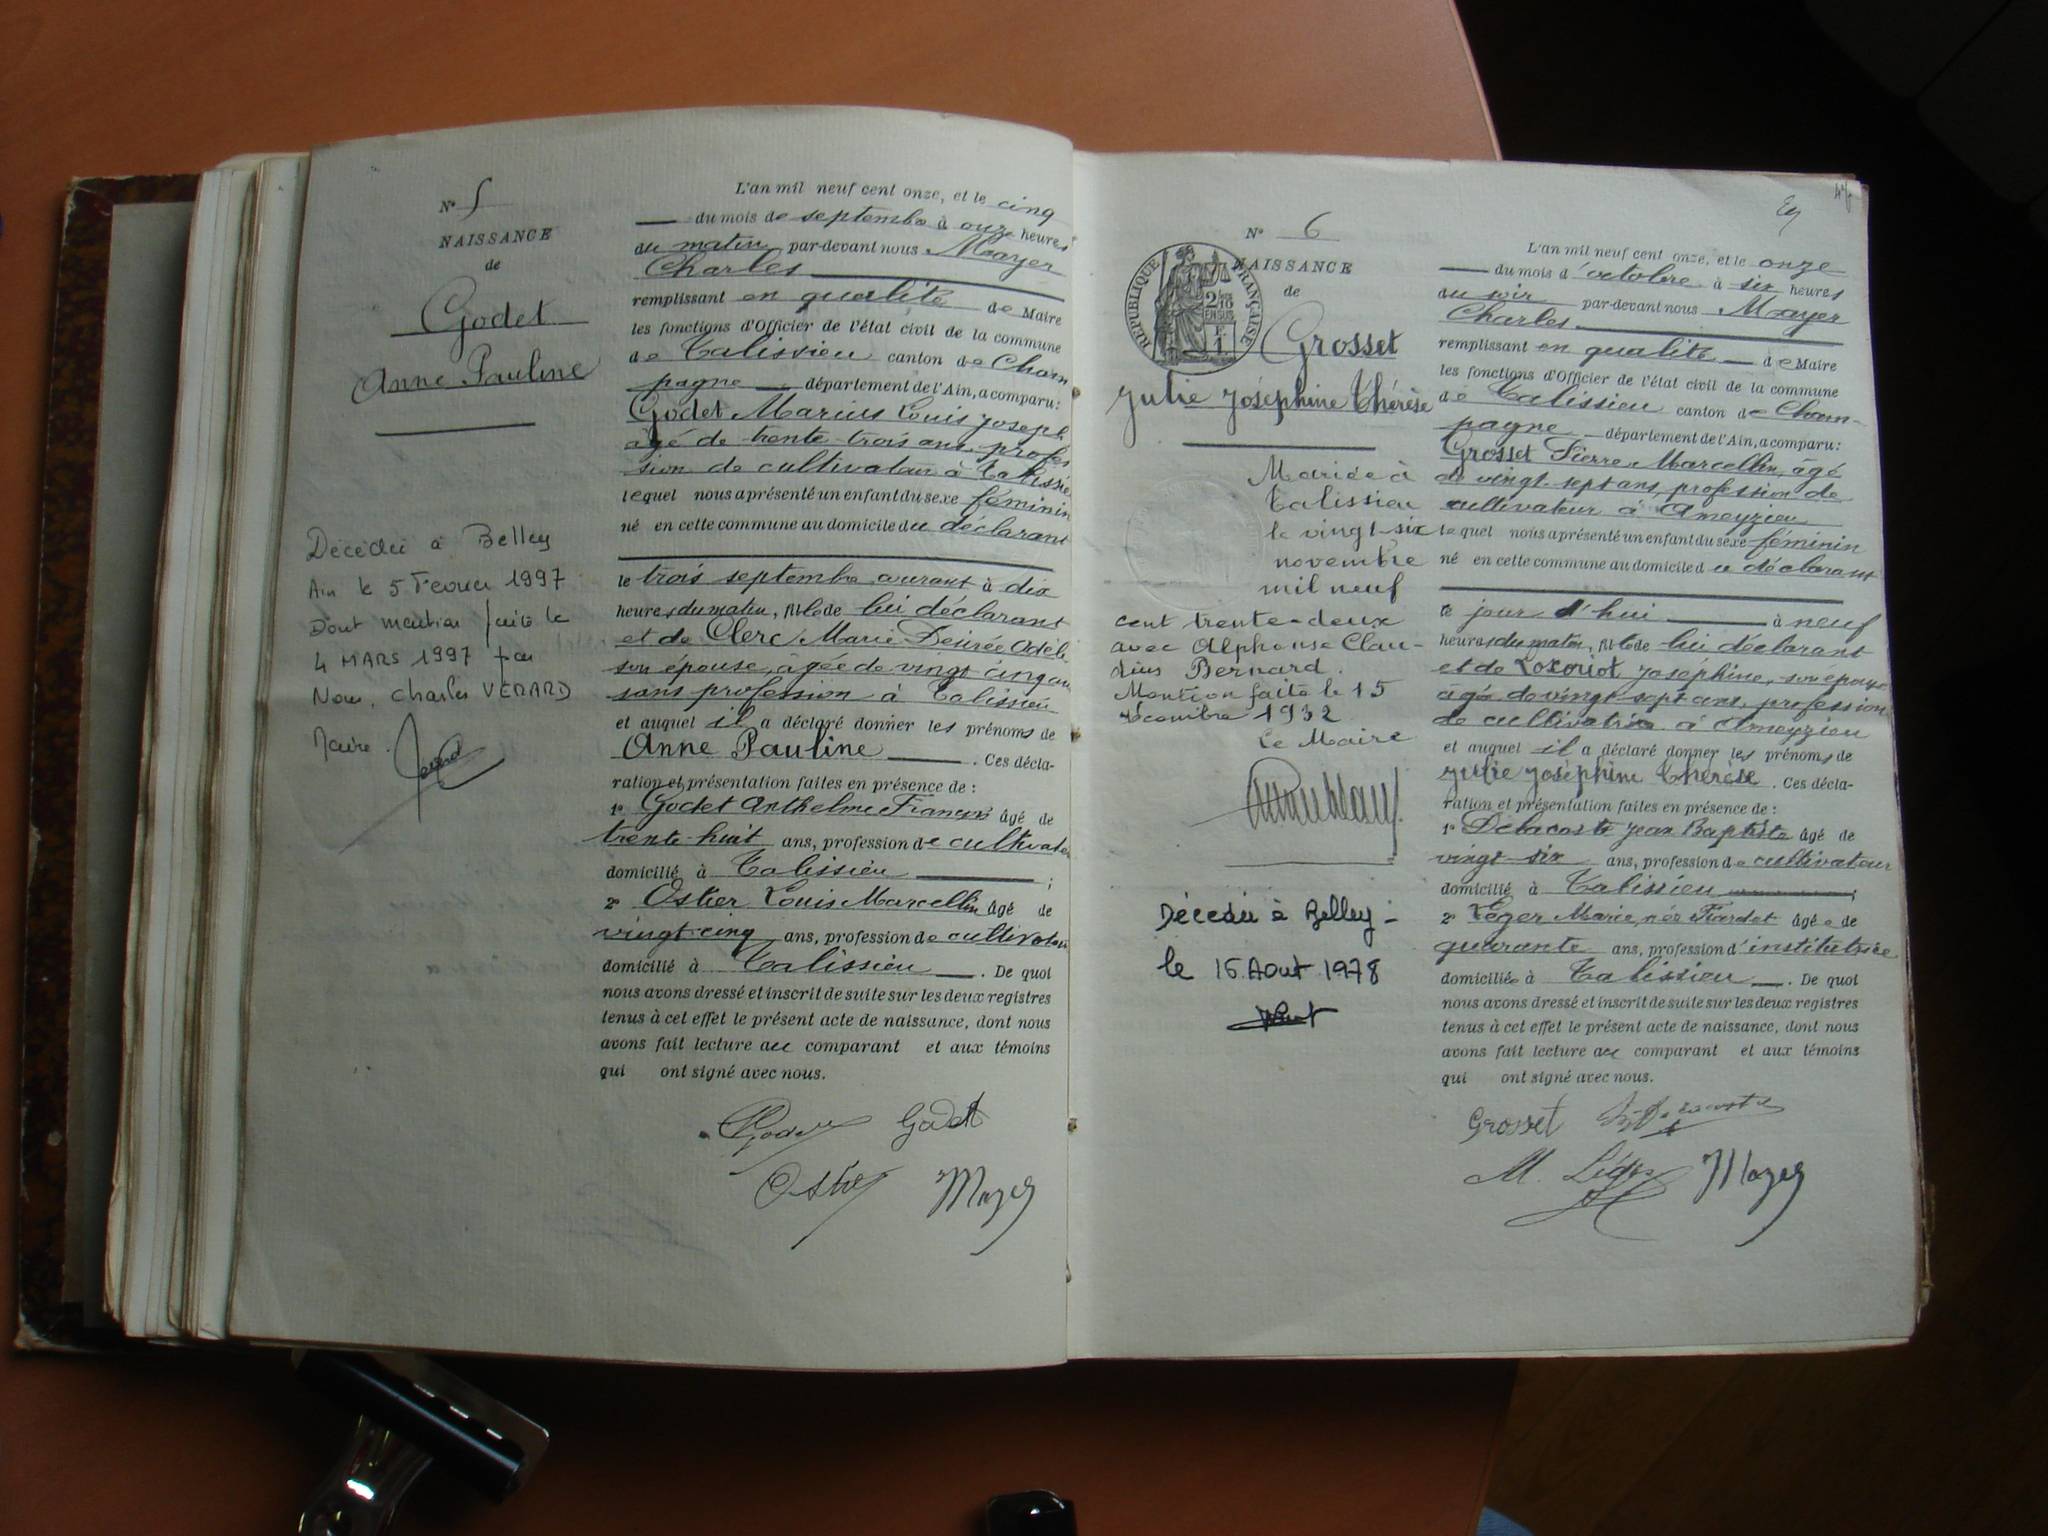 N° 5
NAISSANCE
de
Godet
Anne Pauline
Décédée à Belley
Ain le 5 Février 1997
Dont mention faite le
4 MARS 1997 par
Nous, Charles VERARD
Maire.
L'an mil neuf cent onze, et le cinq
du mois de septembre à onze heures
du matin par-devant nous Mayer
Charles
remplissant en qualité de Maire
les fonctions d'Officier de l'état civil de la commune
de Talissieu canton de Cham
pagne département de l'Ain, a comparu:
Godet Marius Louis Joseph
âgé de trente-trois ans, profes
sion de cultivateur à Talissieu
lequel nous a présenté un enfant du sexe féminin
né en cette commune au domicile du déclarant
le trois septembre courant à dix
heures du matin, fille de lui déclarant
et de Clerc Marie Desirée Adèle
son épouse, âgée de vingt cinq ans
sans profession à Talissieu
et auquel il a déclaré donner les prénoms de
Anne Pauline. Ces décla-
ration et présentation faites en présence de :
1° Godet Anthelme François âgé de
trente-huit ans, profession de cultivateur
domicilié à Talissieu ;
2° Ostier Louis Marcellin âgé de
vingt-cinq ans, profession de cultivateur
domicilié à Talissieu. De quoi
nous avons dressé et inscrit de suite sur les deux registres
tenus à cet effet le présent acte de naissance, dont nous
avons fait lecture au comparant et aux témoins
qui ont signé avec nous.
Godet Godet
Ostier Mayer
N° 6
NAISSANCE
de
RÉPUBLIQUE FRANÇAISE
Grosset
Julie Joséphine Thérèse
Mariée à
Talissieu
le vingt-six
novembre
mil neuf
cent trente-deux
avec Alphonse Clau-
dius Bernard.
Mention faite le 15
décembre 1932
Le Maire
Décédée à Belley -
le 16 Aout 1978
L'an mil neuf cent onze, et le onze
du mois d'octobre à six heures
du soir par-devant nous Mayer
Charles
remplissant en qualité de Maire
les fonctions d'Officier de l'état civil de la commune
de Talissieu canton de Cham-
pagne département de l'Ain, a comparu:
Grosset Pierre Marcellin, âgé
de vingt sept ans, profession de
cultivateur à Ameyzieu
lequel nous a présenté un enfant du sexe féminin
né en cette commune au domicile du déclarant
le jour d'hui à neuf
heures du matin, fille de lui déclarant
et de Joséphine, son épouse
âgée de vingt-sept ans, profession
de cultivatrice à Ameyzieu
et auquel il a déclaré donner les prénoms de
Julie Joséphine Thérèse. Ces décla-
ration et présentation faites en présence de :
1° Delacoste Jean Baptiste âgé de
vingt-six ans, profession de cultivateur
domicilié à Talissieu ;
2° Léger Marie, née Fiardet âgée de
quarante ans, profession d'institutrice
domiciliée à Talissieu. De quoi
nous avons dressé et inscrit de suite sur les deux registres
tenus à cet effet le présent acte de naissance, dont nous
avons fait lecture au comparant et aux témoins
qui ont signé avec nous.
Grosset
M. Léger Mayer